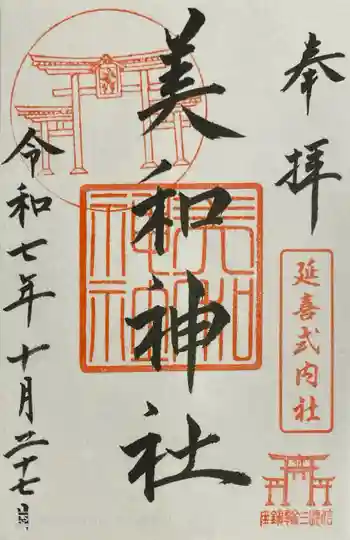 奉拝
延喜式内社
信濃三輪鎮座
美和神社
美和神社
令和七年十月二十七日